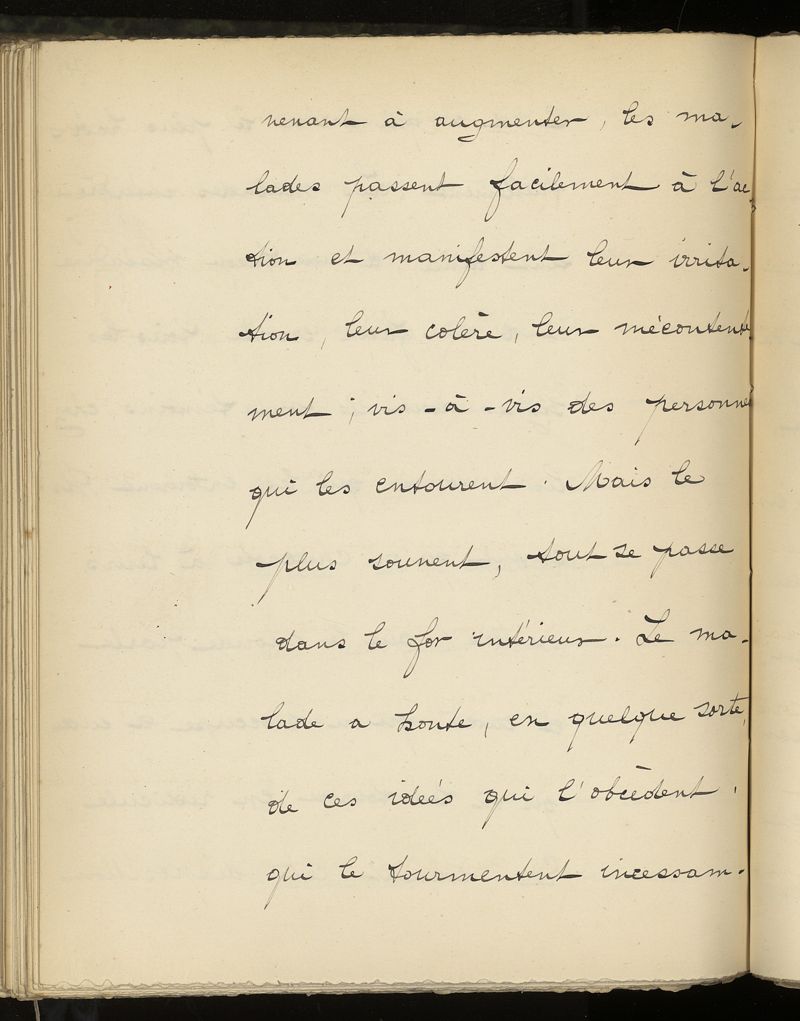 venant à augmenter, les ma-
lades passent facilement à l'ac-
tion et manifestent leur irrita-
tion, leur colère, leur mécontente
ment ; vis-à-vis des personnes
qui les entourent. Mais le
plus souvent, tout se passe
dans le for intérieur. Le ma-
lade a honte, en quelque sorte,
de ces ideés qui l'obcèdent,
qui le tourmentent incessam-